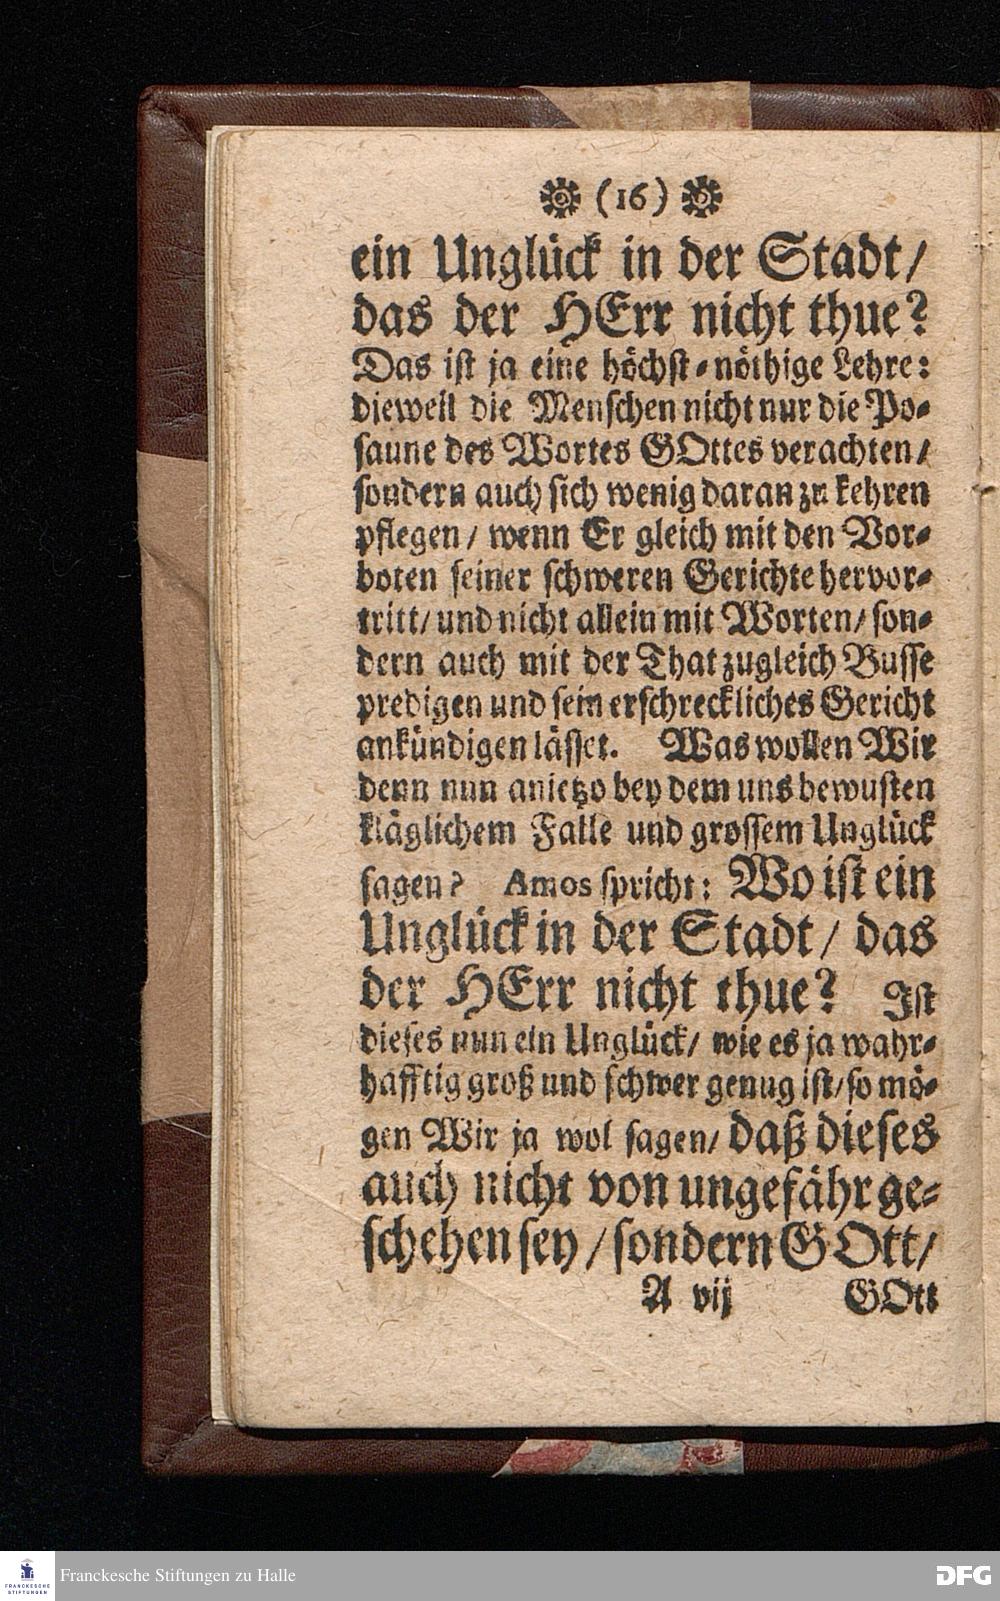 (16)
ein Unglück in der Stadt/
das der HErr nicht thue?
Das ist ja eine höchst-nöthige Lehre:
dieweil die Menschen nicht nur die Po-
saune des Wortes GOttes verachten/
sondern auch sich wenig daran zu kehren
pflegen/ wenn Er gleich mit den Vor-
boten seiner schweren Gerichte hervor-
tritt/ und nicht allein mit Worten/ son-
dern auch mit der That zugleich Busse
predigen und sein erschreckliches Gericht
ankündigen lässet. Was wollen Wir
denn nun anietzo bey dem uns bewusten
kläglichem Falle und grossem Unglück
sagen? Amos spricht: Wo ist ein
Unglück in der Stadt/ das
der HErr nicht thue? Ist
dieses nun ein Unglück/ wie es ja wahr-
hafftig groß und schwer genug ist/ so mö-
gen Wir ja wol sagen/ daß dieses
auch nicht von ungefähr ge-
schehen sey/ sondern GOtt/
A vij GOtt
FRANCKESCHE STIFTUNGEN
Franckesche Stiftungen zu Halle
DFG